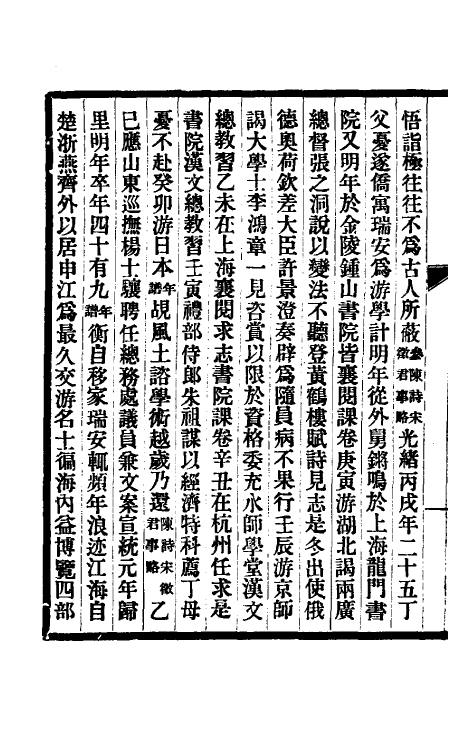 悟詣極往往不爲古人所蔽參陳詩宋徵君事略光緒丙戌年二十五丁
父憂遂僑寓瑞安爲游學計明年從外舅鏘鳴於上海龍門書
院又明年於金陵鍾山書院皆襄閱課卷庚寅游湖北謁兩廣
總督張之洞說以變法不聽登黃鶴樓賦詩見志是冬出使俄
德奥荷欽差大臣許景澄奏辟爲隨員病不果行壬辰游京師
謁大學士李鴻章一見咨賞以限於資格委充水師學堂漢文
總教習乙未在上海襄閱求志書院課卷辛丑在杭州任求是
書院漢文總教習壬寅禮部侍郎朱祖謀以經濟特科薦丁母
憂不赴癸卯游日本年譜覘風土諮學術越歲乃還陳詩宋徵君事略乙
巳應山東巡撫楊士驤聘任總務處議員兼文案宣統元年歸
里明年卒年四十有九年譜衡自移家瑞安輒頻年浪迹江海自
楚浙燕齊外以居申江爲最久交游名士徧海內益博覽四部